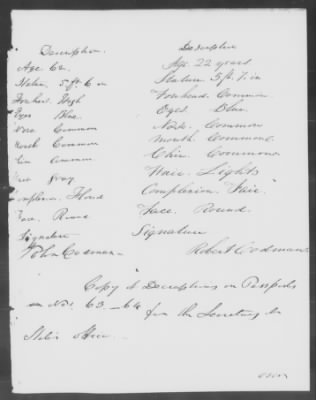 Description.
Age 62.
Stature, 5 ft. 6 in
Forehead High
Eyes Blue
Nose Common
Mouth Common
Chin Common
Hair Gray
Complexion Florid
Face. Round
Signature
John
Description
Age 22 years
Stature 5 ft. 7. in
Forehead. Common
Eyes. Blue.
Nose. Common
Mouth. Common
Chin. Common
Hair. Light
Complexion. Fair.
Face. Round.
Signature
Robert
Copy of Descriptions on Passports
Nos. 63.-64 from the Secretary